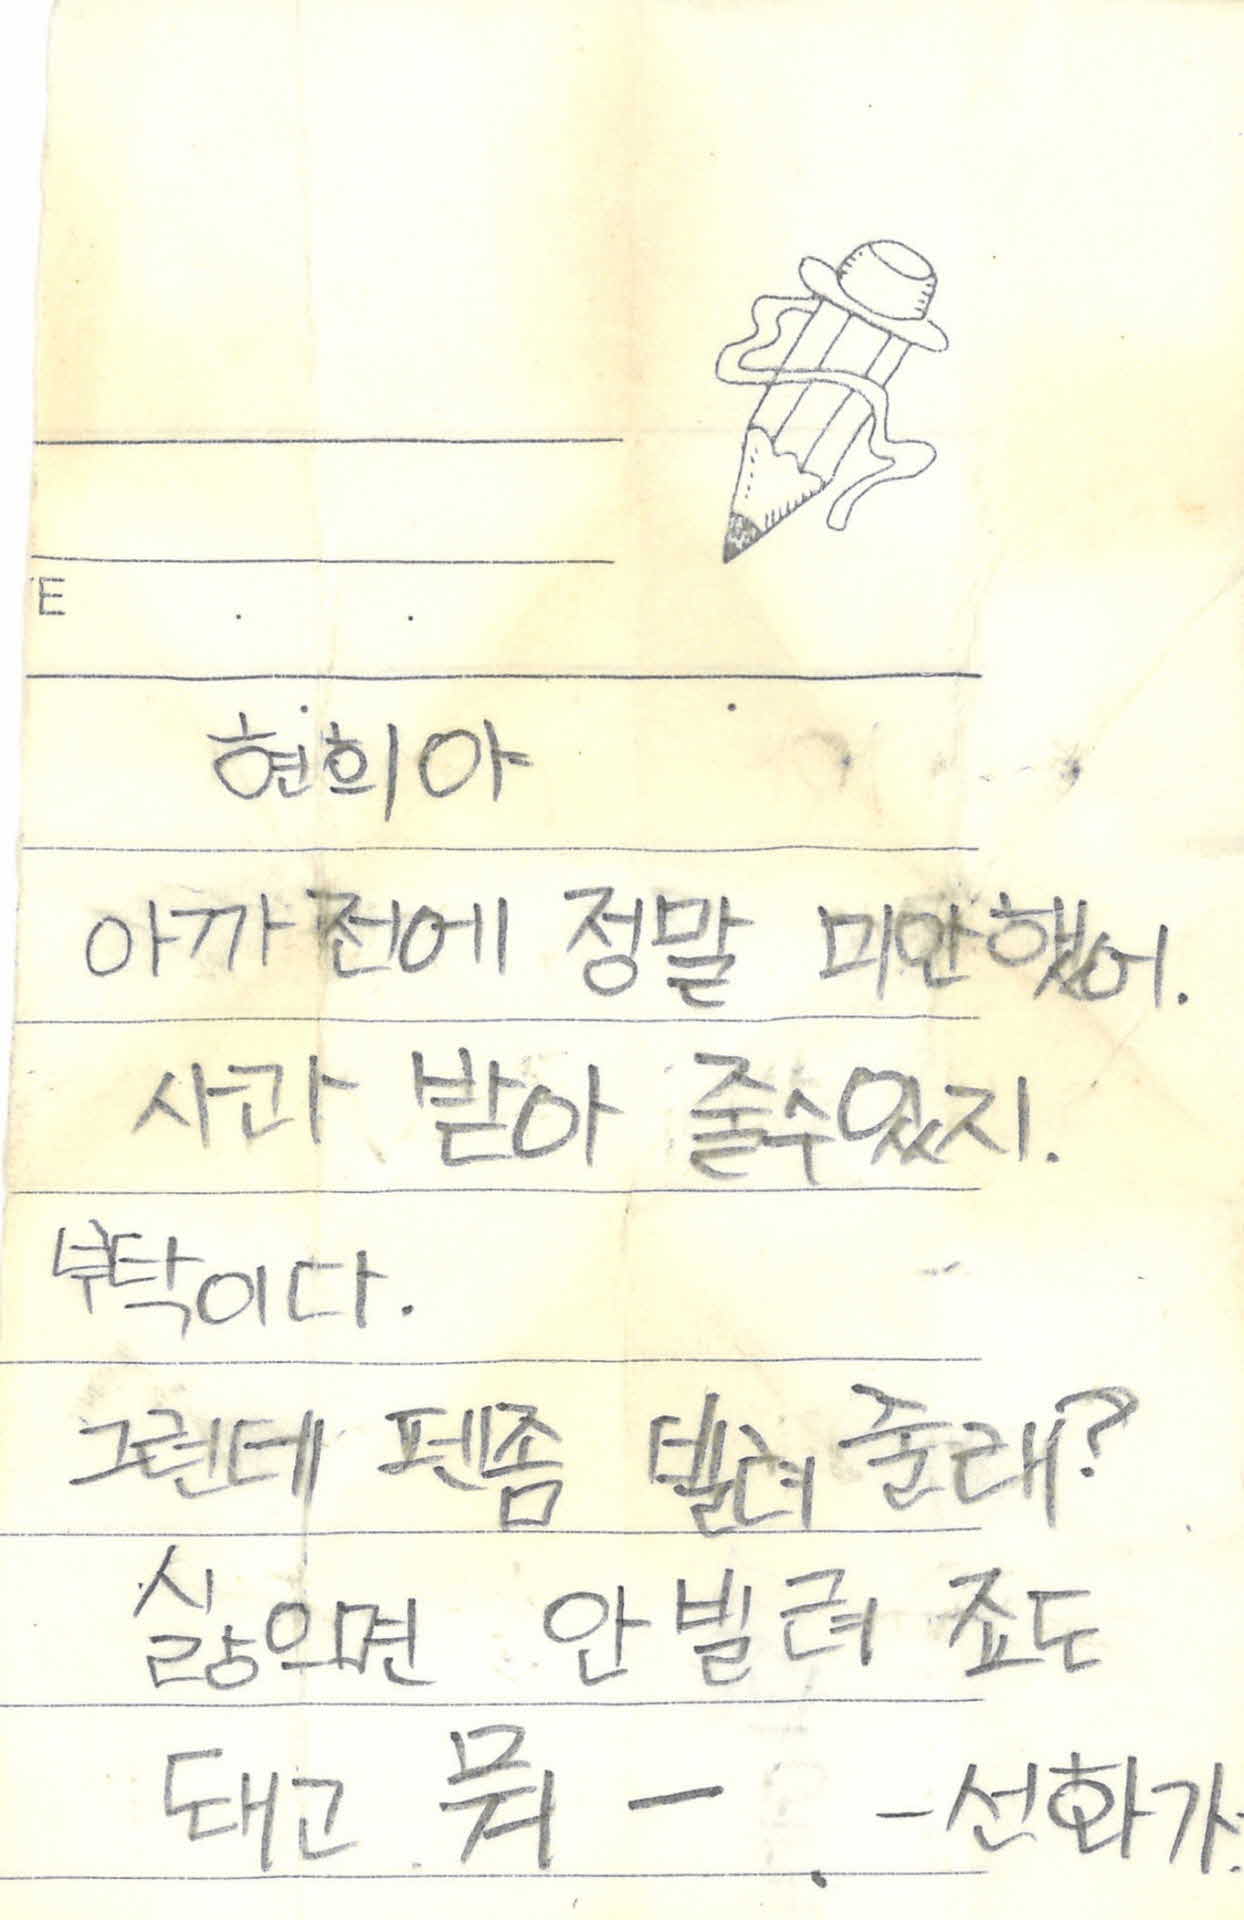 E
현희야
아까 전에 정말 미안했어.
사과 받아 줄수있지.
부탁이다.
그런데 펜좀 빌려 줄래?
싫으면 안빌려 죠도
돼고 뭐 —
-선화가.